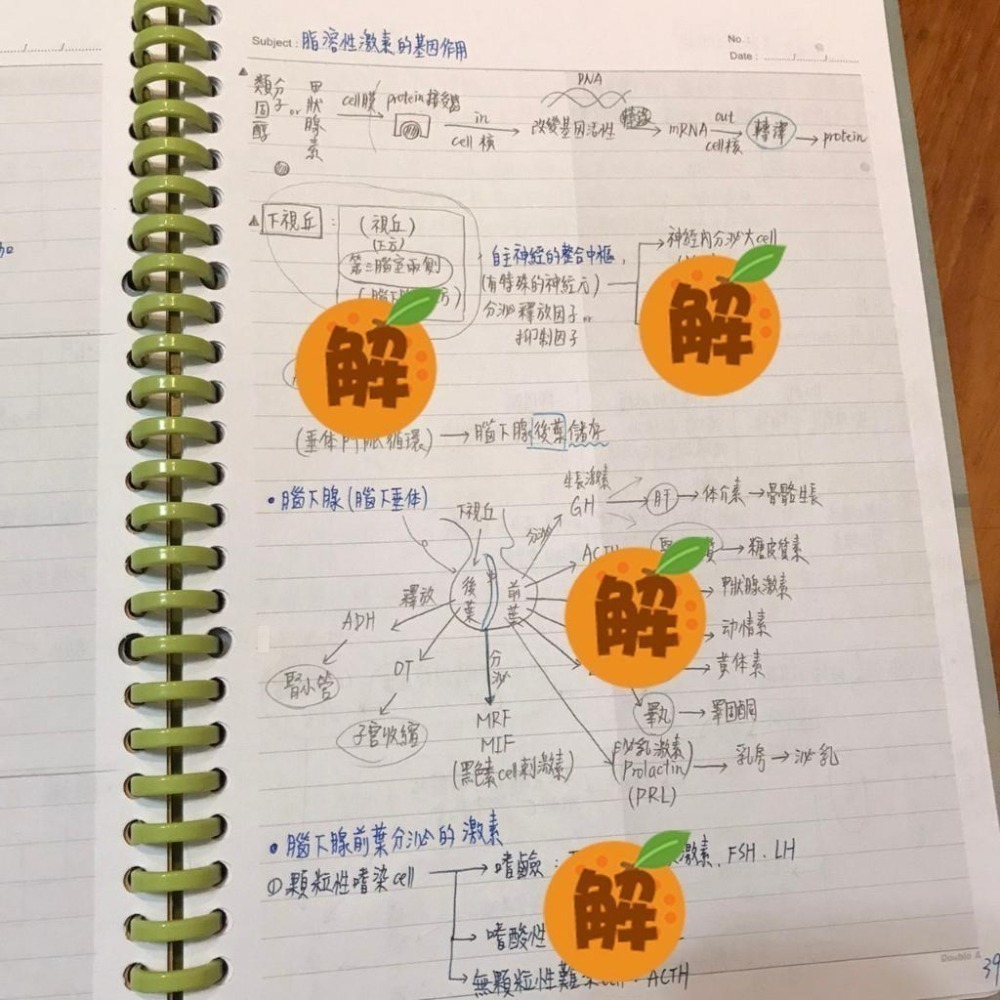 Subject : 脂溶性激素的基因作用
No. :
Date :
類固醇
分子 or
甲狀腺素
cell膜
protein接受器
in
cell核
DNA
改變基因活性
轉錄
mRNA
out
cell核
轉譯
protein
下視丘 :
(視丘)
(下方)
第三腦室兩側
自主神經的整合中樞,
(有特殊的神經元)
分泌釋放因子 or
抑制因子
神經內分泌大cell
解
解
(垂体門脈循環) → 腦下腺後葉儲存
• 腦下腺 (腦下垂体)
下視丘
後葉
前葉
釋放
ADH
腎小管
OT
子宮收縮
分泌
MRF
MIF
(黑色素cell刺激素)
分泌
生長激素
GH
肝 → 体介素 → 骨骼生長
ACTH
糖皮質素
解
甲狀腺激素
动情素
黃体素
睪丸 → 睪固酮
泌乳激素
Prolactin
(PRL)
乳房 → 泌乳
• 腦下腺前葉分泌的激素
① 顆粒性嗜染cell
嗜鹼 :
激素、FSH、LH
解
嗜酸性
無顆粒性難染cell : ACTH
Double A
39